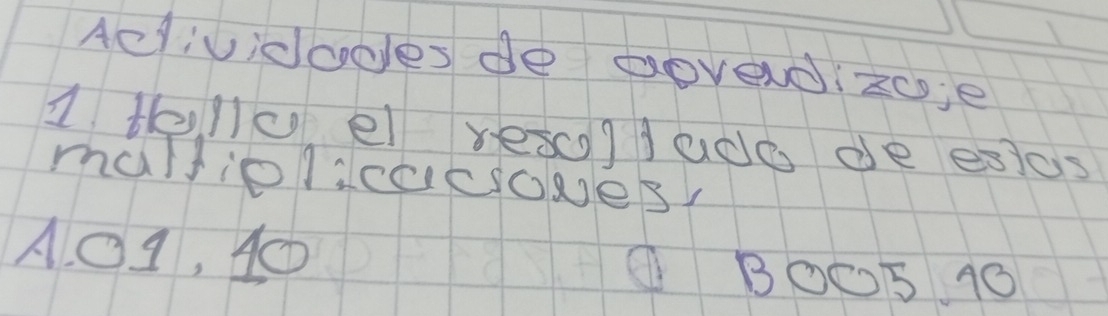 Actividades de aprendizaje
1. Halla el resultado de estas
multiplicaciones,
A. 01, 10 B 005. 10